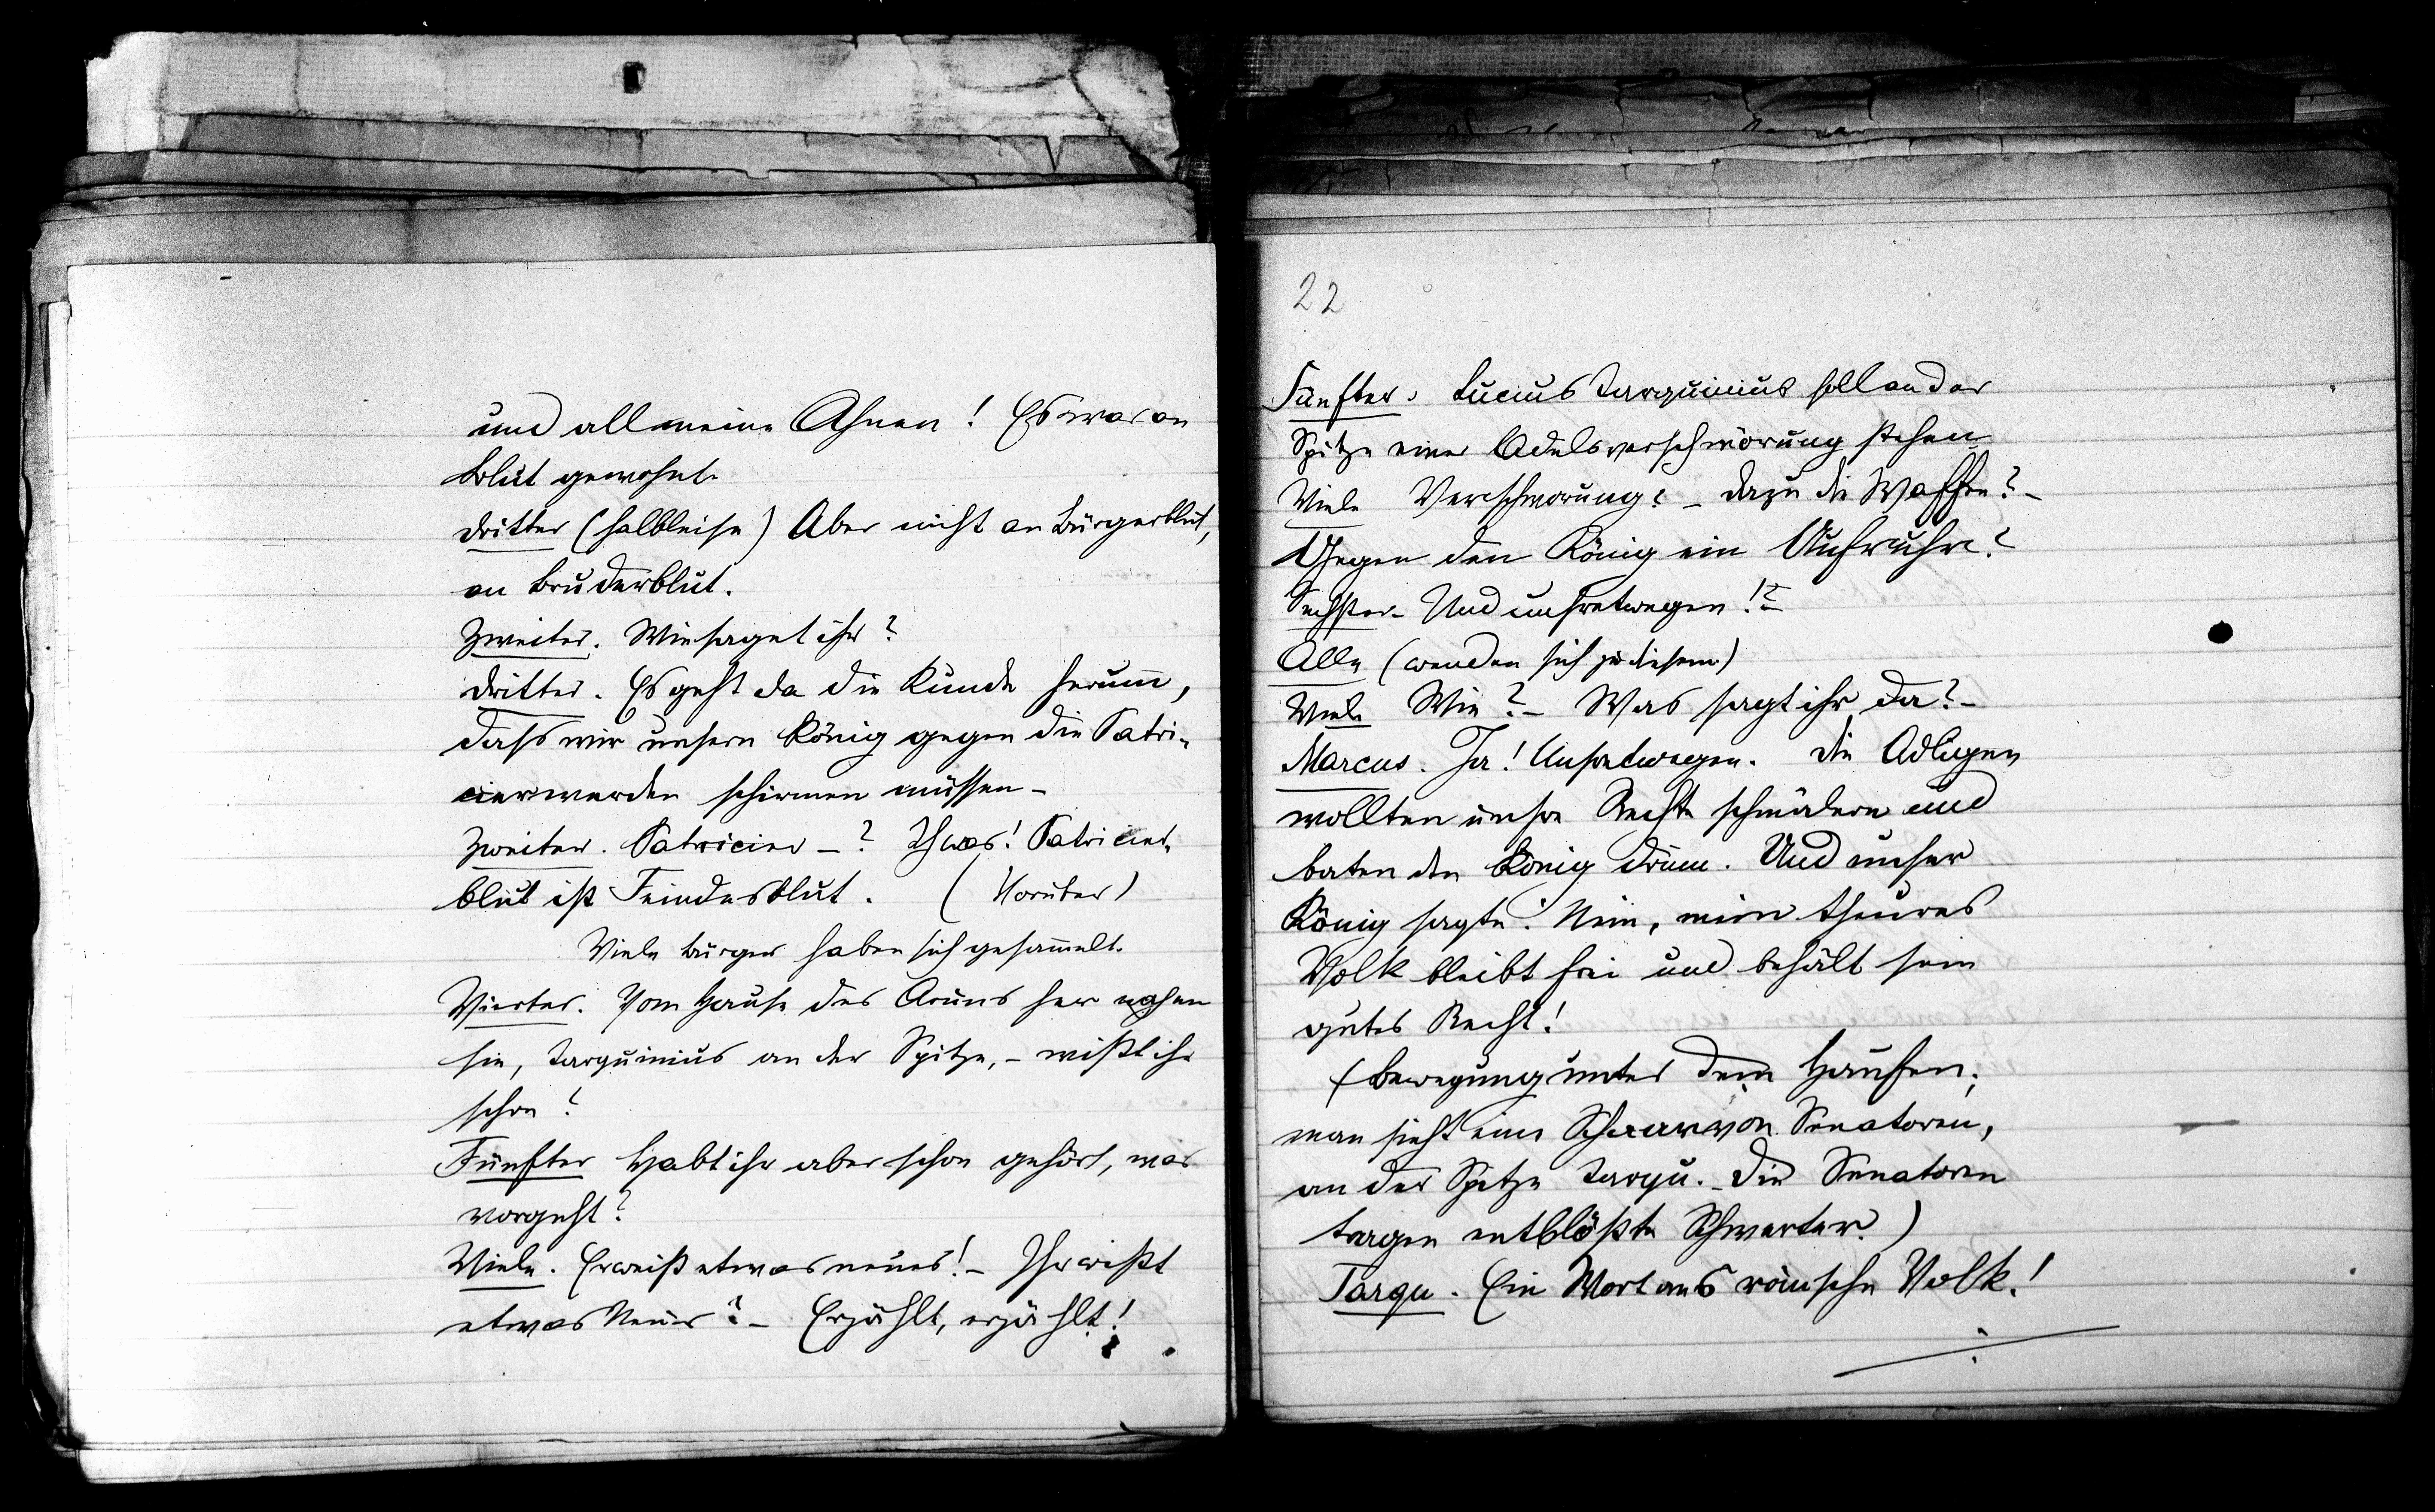 und all meine Ahnen! Es war an
Blut gewohnt.
Dritter (halbleise) Aber nicht an Bürgerblut,
an Bruderblut.
Zweiter. Wie saget ihr?
Dritter. Es geht da die Kunde herum,
dass wir unsern König gegen die Patri-
cier werden schirmen müssen –
Zweiter. Patricier –? Patricier-
blut ist Feindesblut. (Vorüber)
Viele Bürger haben sich gesam̅elt.
Vierter. Vom Hause des Aruns her nahen
sie, Tarquinius an der Spitze, – wißt ihr
schon?
Fünfter Habt ihr aber schon gehört, was
vorgeht?
Viele. Er weiß etwas neues! – Ihr wißt
etwas Neues? – Erzählt, erzählt!
22
Fünfter. Lucius Tarquinius soll an der
Spitze einer Adelsverschwörung stehen
Viele Verschwörung? – Dazu die Waffen? –
Gegen den König ein Aufruhr?
Sechster – Und unsretwegen!?
Alle (wenden sich zu diesem)
Viele Wie? – Was sagt ihr da? –
Marcus. Ja! Unsretwegen. Die Adligen
wollten unsre Rechte schmälern und
baten den König drum. Und unser
König sagte: Nein, mein theures
Volk bleibt frei und behält sein
gutes Recht!
(Bewegung unter dem Haufen;
man sieht eine Schaar von Senatoren,
an der Spitze Tarqu. – Die Senatoren
tragen entblößte Schwerter.)
Tarqu. Ein Wort ans römsche Volk!